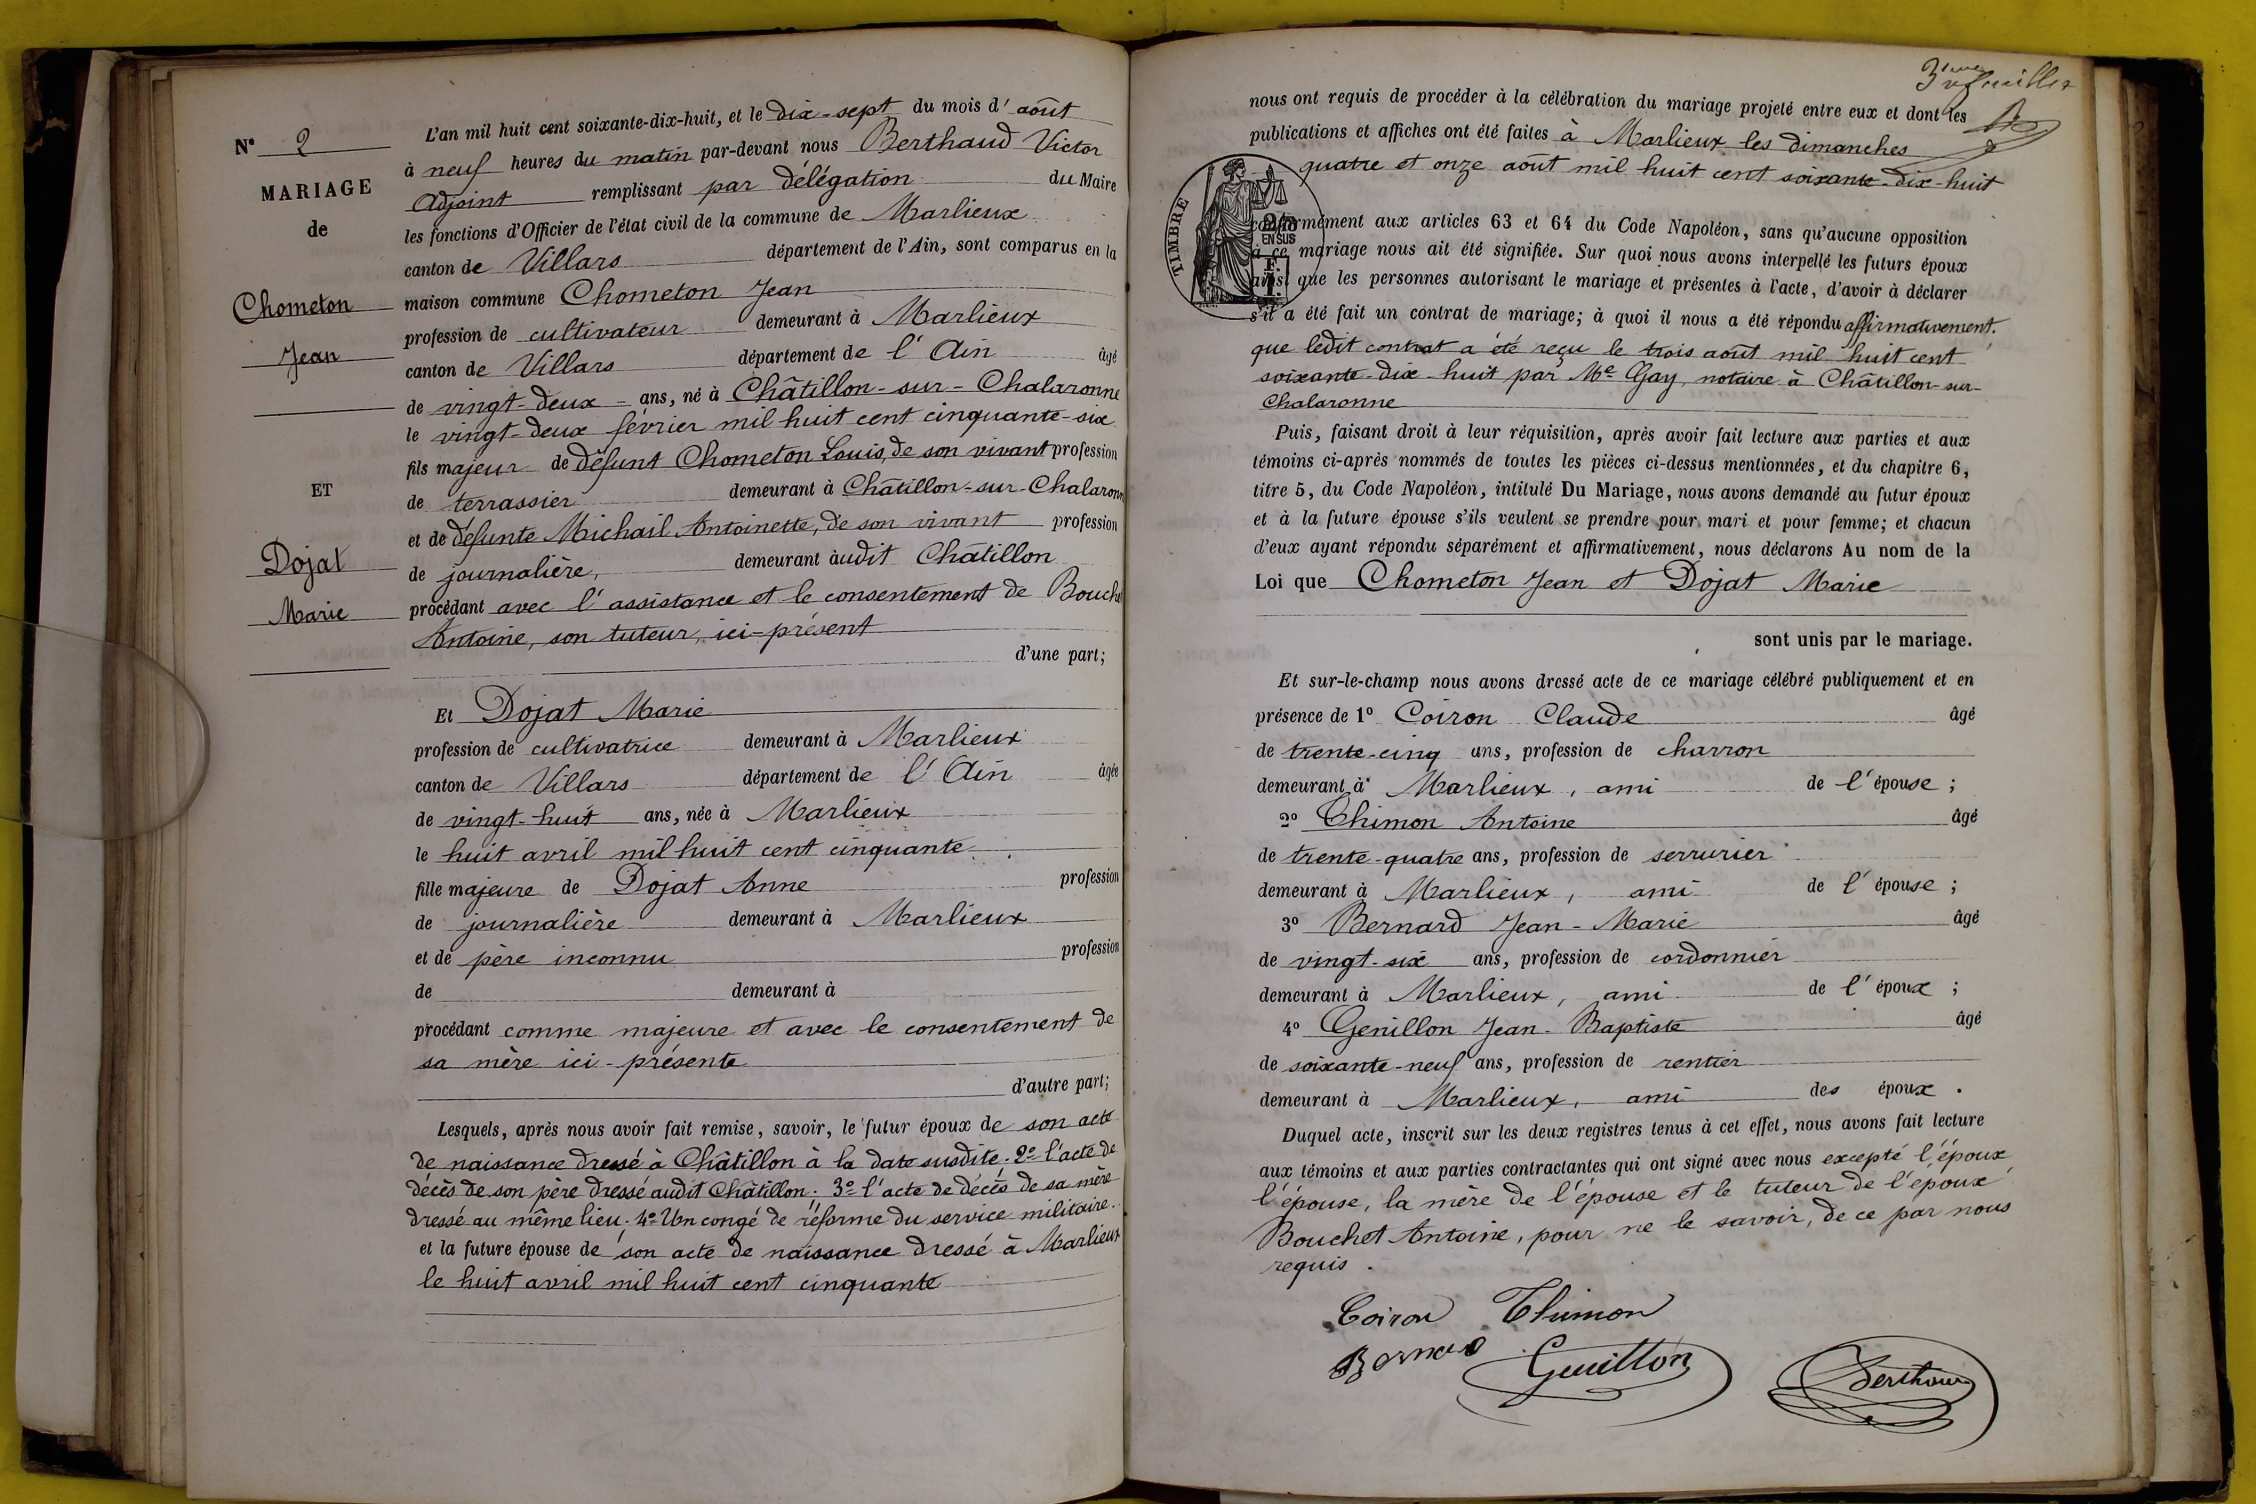 N° 2
MARIAGE
de
Chometon
Jean
ET
Dojat
Marie
L'an mil huit cent soixante-dix-huit, et le dix-sept du mois d'août
à neuf heures du matin par-devant nous Berthaud Victor
Adjoint remplissant par délégation du Maire
les fonctions d'Officier de l'état civil de la commune de Marlieux
canton de Villars département de l'Ain, sont comparus en la
maison commune Chometon Jean
profession de cultivateur demeurant à Marlieux
canton de Villars département de l'Ain âgé
de vingt-deux ans, né à Châtillon-sur-Chalaronne
le vingt-deux février mil huit cent cinquante-six
fils majeur de défunt Chometon Louis, de son vivant profession
de terrassier demeurant à Châtillon-sur-Chalaronne
et de défunte Michail Antoinette, de son vivant profession
de journalière, demeurant àudit Châtillon
procédant avec l'assistance et le consentement de Bouchet
Antoine, son tuteur, ici-présent
d'une part;
Et Dojat Marie
profession de cultivatrice demeurant à Marlieux
canton de Villars département de l'Ain âgée
de vingt-huit ans, née à Marlieux
le huit avril mil huit cent cinquante
fille majeure de Dojat Anne profession
de journalière demeurant à Marlieux
et de père inconnu profession
de demeurant à
procédant comme majeure et avec le consentement de
sa mère ici-présente
d'autre part;
Lesquels, après nous avoir fait remise, savoir, le futur époux de son acte
de naissance dressé à Châtillon à la date susdite. 2° l'acte de
décès de son père dressé audit Châtillon; 3° l'acte de décès de sa mère
dressé au même lieu. 4° Un congé de réforme du service militaire.
et la future épouse de son acte de naissance dressé à Marlieux
le huit avril mil huit cent cinquante
3ième feuillet
nous ont requis de procéder à la célébration du mariage projeté entre eux et dont les
publications et affiches ont été faites à Marlieux les dimanches
quatre et onze août mil huit cent soixante-dix-huit
TIMBRE
EN SUS
conformément aux articles 63 et 64 du Code Napoléon, sans qu'aucune opposition
à ce mariage nous ait été signifiée. Sur quoi nous avons interpellé les futurs époux
ainsi que les personnes autorisant le mariage et présentes à l'acte, d'avoir à déclarer
s'il a été fait un contrat de mariage; à quoi il nous a été répondu affirmativement.
que ledit contrat a été reçu le trois août mil huit cent
soixante-dix-huit par Me Gay, notaire à Châtillon-sur-
Chalaronne
Puis, faisant droit à leur réquisition, après avoir fait lecture aux parties et aux
témoins ci-après nommés de toutes les pièces ci-dessus mentionnées, et du chapitre 6,
titre 5, du Code Napoléon, intitulé Du Mariage, nous avons demandé au futur époux
et à la future épouse s'ils veulent se prendre pour mari et pour femme; et chacun
d'eux ayant répondu séparément et affirmativement, nous déclarons Au nom de la
Loi que Chometon Jean et Dojat Marie
sont unis par le mariage.
Et sur-le-champ nous avons dressé acte de ce mariage célébré publiquement et en
présence de 1° Coiron Claude âgé
de trente-cinq ans, profession de charron
demeurant à Marlieux, ami de l'épouse;
2° Thimon Antoine âgé
de trente-quatre ans, profession de serrurier
demeurant à Marlieux, ami de l'épouse;
3° Bernard Jean-Marie âgé
de vingt-six ans, profession de cordonnier
demeurant à Marlieux, ami de l'époux;
4° Genillon Jean-Baptiste âgé
de soixante-neuf ans, profession de rentier
demeurant à Marlieux, ami des époux.
Duquel acte, inscrit sur les deux registres tenus à cet effet, nous avons fait lecture
aux témoins et aux parties contractantes qui ont signé avec nous excepté l'époux
l'épouse, la mère de l'épouse et le tuteur de l'époux
Bouchet Antoine, pour ne le savoir, de ce par nous
requis.
Coiron Thimon
Bernard Genillon Berthaud